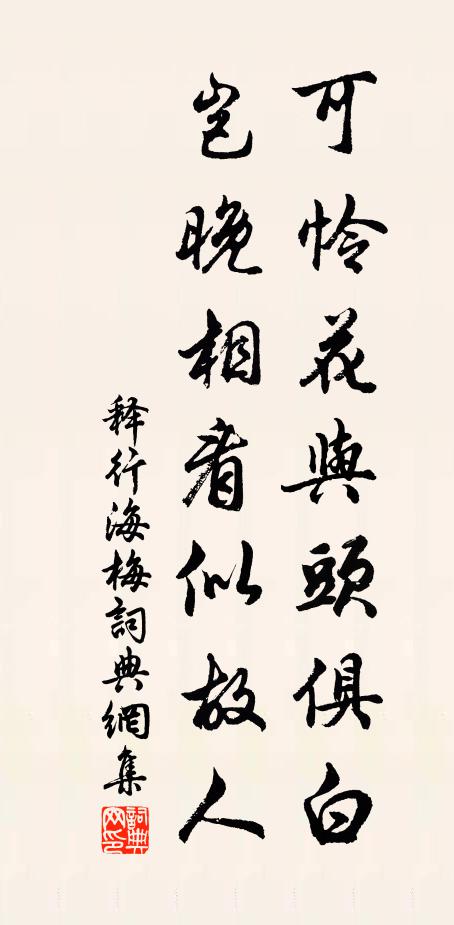 可怜花與頭俱白
岂晚相看似故人
释行海梅詞典網集
詞典
网印